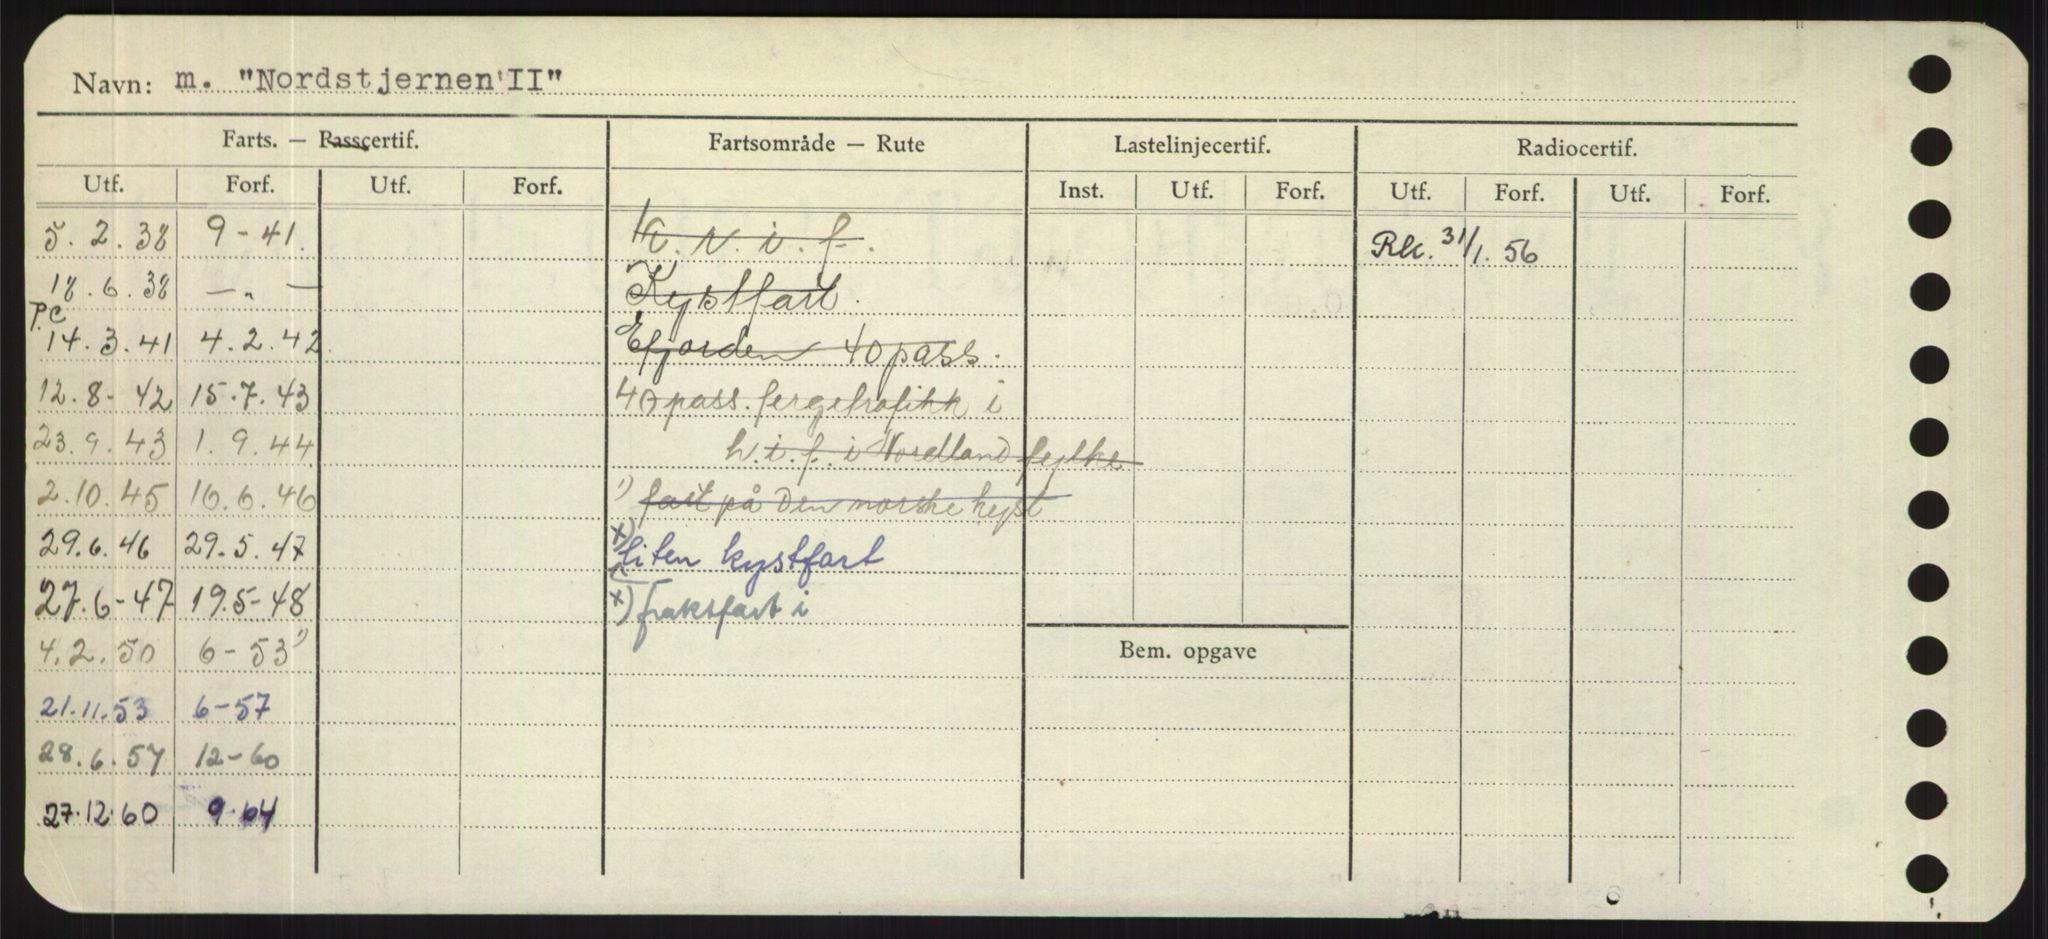 Navn: m. "Nordstjernen'II"
Farts. — Passcertif. Fartsområde — Rute Lastelinjecertif. Radiocertif.
Utf. Forf. Utf. Forf. Inst. Utf. Forf. Utf. Forf. Utf. Forf.
5. 2. 38 9-41. K. N. i. f. Rk. 31/1. 56
18. 6. 38 — „ — Kystfart.
P.C
14. 3. 41 4. 2. 42 Efjorden 40 pass.
12. 8- 42 15. 7. 43 40 pass. fergetrafikk i
23. 9. 43 1. 9. 44 h. i. f. i Nordland fylke
2. 10. 45 16. 6. 46 1) fart på den norske kyst
29. 6. 46 29. 5. 47 x) liten kystfart
27. 6-47 19.5-48 x) fraktfart i
4. 2. 50 6-53 1)
Bem. opgave
21. 11. 53 6-57
28. 6. 57 12-60
27. 12. 60 9. 64